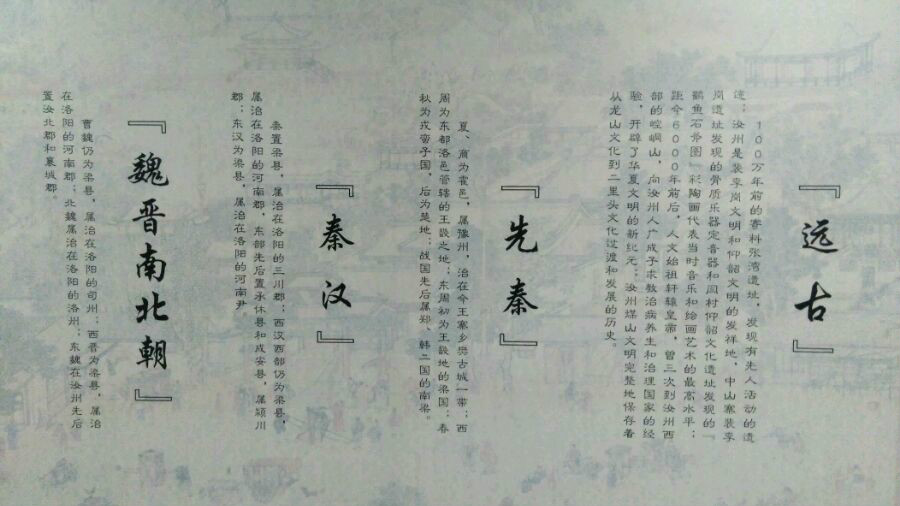 『远古』
100万年前的赛科张湾遗址，发现有先人活动的遗
迹；汝州是裴李岗文明和仰韶文明的发祥地，中山寨裴李
岗遗址发现的骨质乐器定音器和阎村仰韶文化遗址发现的『
鹳鱼石斧图』彩陶画代表当时音乐和绘画艺术的最高水平；
距今6000年前后，人文始祖轩辕皇帝，曾三次到汝州西
部的崆峒山，向汝州人广成子求教治病养生和治理国家的经
验，开辟了华夏文明的新纪元；汝州煤山文明完整地保存着
从龙山文化到二里头文化过渡和发展的历史。
『先秦』
夏、商为霍邑，属豫州，治在今王寨乡樊古城一带；西
周为东都洛邑管辖的王畿之地；东周初为王畿地的梁国；春
秋为戎蛮子国，后为楚地；战国先后属郑、韩二国的南梁。
『秦汉』
秦置梁县，属治在洛阳的三川郡；西汉西部仍为梁县，
属治在洛阳的河南郡，东部先后置承休县和成安县，属颍川
郡；东汉为梁县，属治在洛阳的河南尹
『魏晋南北朝』
曹魏仍为梁县，属治在洛阳的司州；西晋为梁县，属治
在洛阳的河南郡；北魏属治在洛阳的洛州；东魏在汝州先后
置汝北郡和襄城郡。